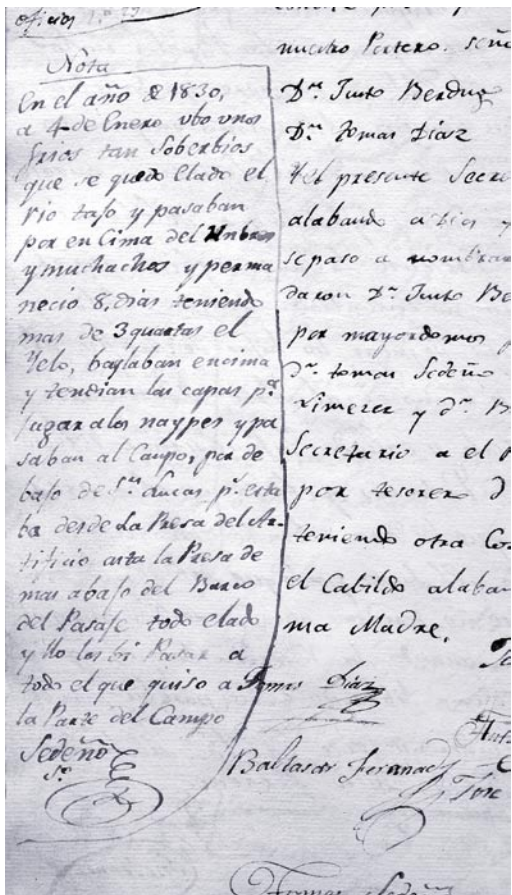 oficios n.º 29
Nota
En el año de 1830,
a 4 de Enero ubo unos
frios tan Soberbios
que se quedo Elado el
rio tajo y pasaban
por en Cima del Hombres
y muchachos y perma
necio 8, dias teniendo
mas de 3 quartas el
Yelo, baylaban encima
y tendian las capas p.ª
jugar a los naypes y pa
saban al Campo, por de
bajo de S.n Lucas p.r esta
ba desde La Presa del Ar-
tificio asta la Presa de
mas abajo del Barco
del Pasaje todo elado
y Yo los bi Pasar a
todo el que quiso a
la Parte del Campo
Sedeño
S.º
nuestro Portero. seño
D.n Justo Berdug
D.n Tomas Diaz
Y el presente Secre
alabando a Dios y
se paso a nombrar
daron D.n Justo Be
por mayordomos p
D.n tomas Sedeño
Limerez y D.n B
Secretario a el P
por tesorero D
teniendo otra Co
el Cabildo alaban
ma Madre.
Tomas Diaz
Baltasar Fernand
Jose
Tomas Sedeñ